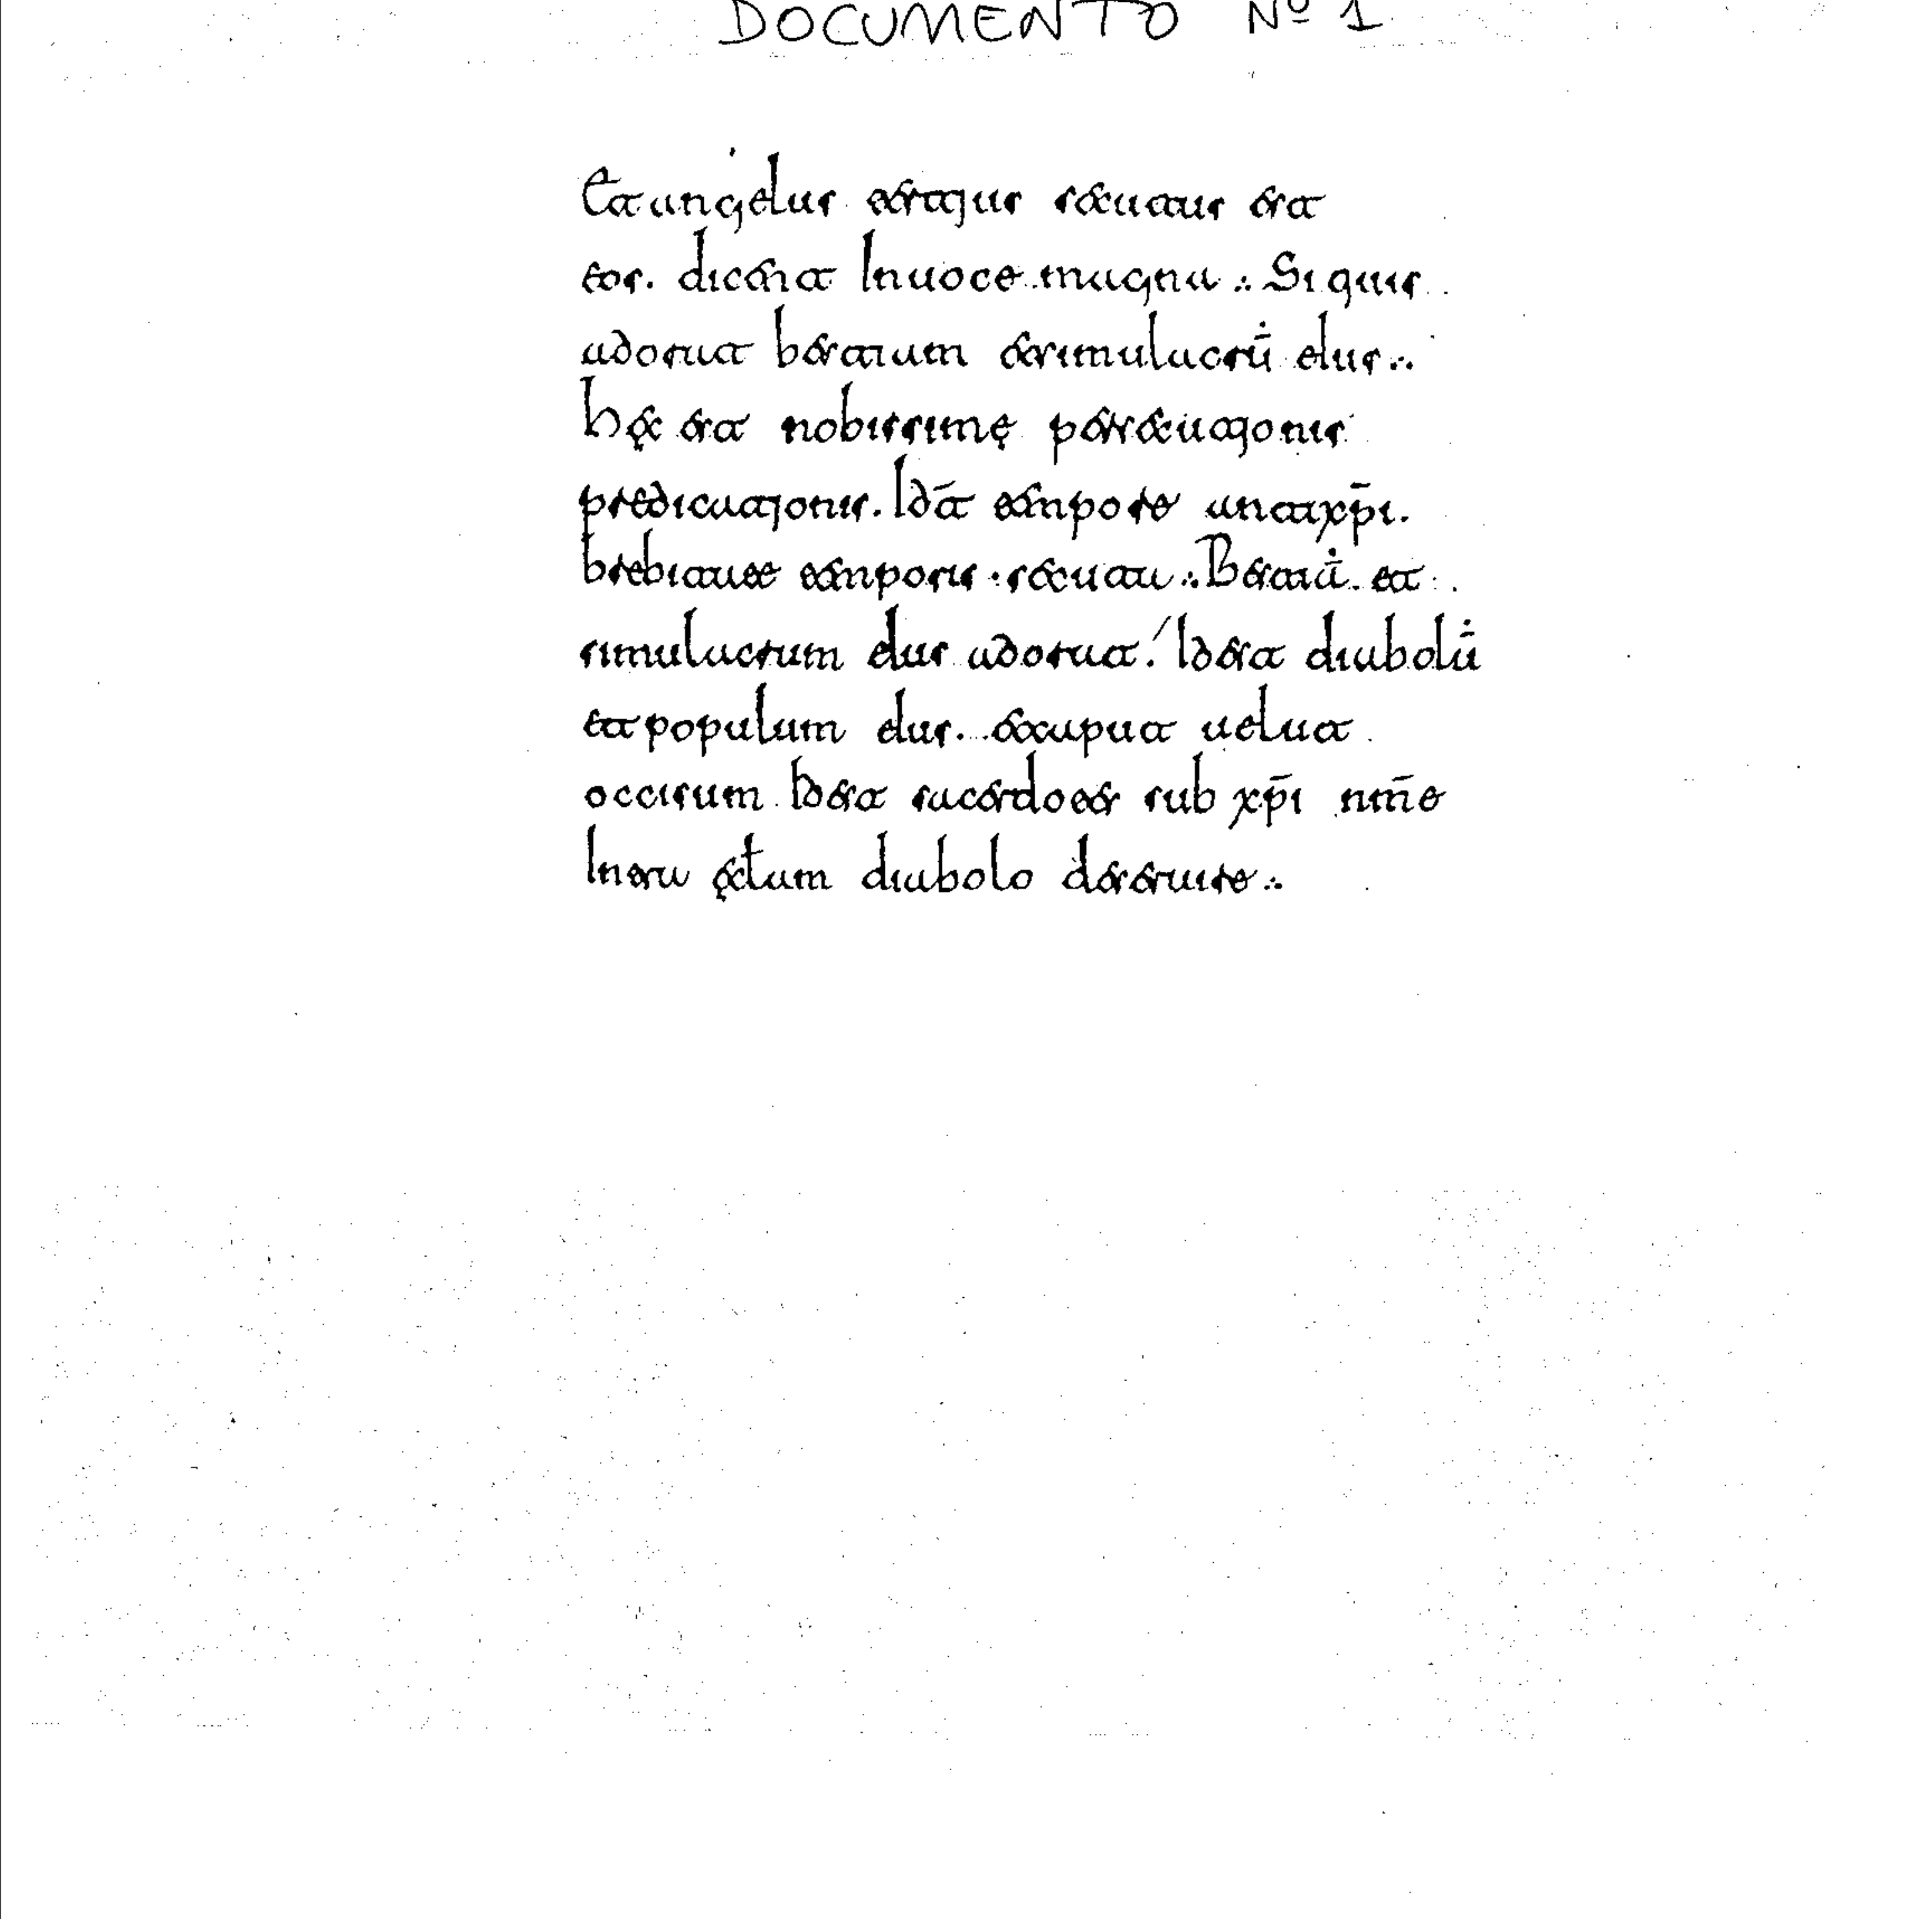 DOCUMENTO Nº 1
Et angelus tertjus secutus est
eos. dicent In uoce magna :. Si quis
adorat bestiam et simulacrū eius :.
hęc est nobissimę persecutjonis
predicatjonis. Idt̄ tempore antixp̄i.
brebitate temporis · secuta :. Bestiā et
simulacrum eius adorat. Idest diabolū
et populum eius. et caput uelut
occisum Idest sacerdotes sub xp̄i nm̄e
Intra ęcłam diabolo deseruire :.